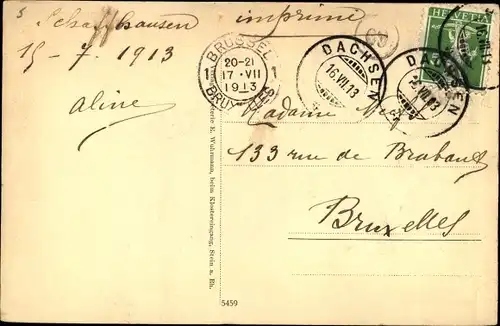 Schaffhausen
imprimé
15-7.1913
Aline
BRUSSEL
20-21
17·VII
1913
1 1
BRUXELLES
DACHSEN
16.VII.13
DACHSEN
16.VII.13
HELVETIA
Madame
133 rue de Brabant
Bruxelles
E. Wuhrmann, beim Klostereingang, Stein a. Rh.
5459